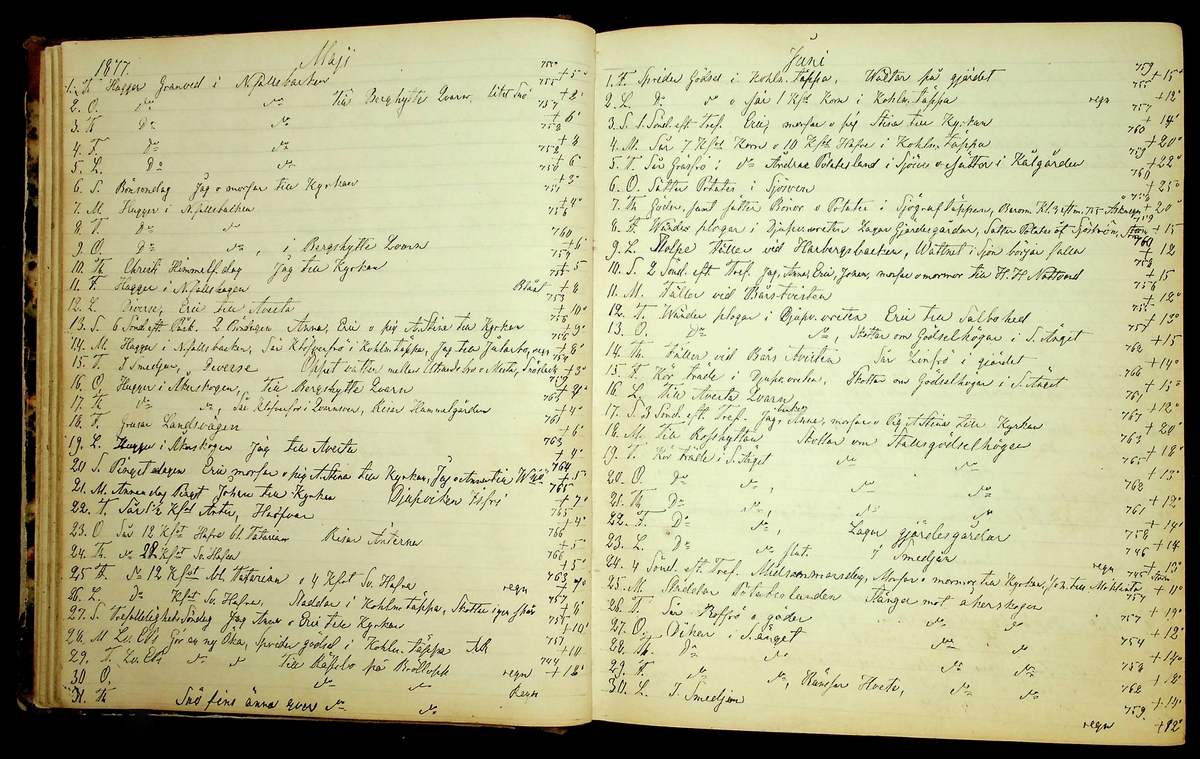 1877. Maji
1. T. Hugger Granved i N.fallsbacken 750 + 5°
2. O. Do Do till Berghytte Qvarn, litet Snö 755 + 2°
3. T. Do Do 757 + 6°
4. F. Do Do 758 + 4
5. L. Do Do 758 + 6
6. S. Bönsöndag Jag o morfar till Kyrkan 756 + 3°
7. M. Hugger i N.fallsbacken 751 + 4°
8. T. Do Do 756
9. O. Do Do, i Bergshytte Qvarn 760 + 6°
10. Th. Christi Himmelsf.dag Jag till Kyrkan 759 + 5
11. F. Hugger i N.fallshagen Blåst + 4
12. L. Diverse, Eric till Avesta 753 + 10°
13. S. 6 Sönd eft Påsk. 2 Böndagen Anna, Eric o pig A.Stina till Kyrkan 758 + 9°
14. M. Hugger i N.fallsbacken, Sår Klöfverfrö i Kohlm.täppa, Jag till Jularbo, regn + 8°
15. T. I Smedjan, Diverse Öppet vatten mellan Utsundsbro o Nästa, Snöslask 754 + 3°
16. O. Hugger i Åkerskogen, till Bergshytte Qvarn + 4°
17. Th. Do Do, Sår Klöfverfrö i Qvarnsven, Risar Hammelgården 764 + 4°
18. F. Grusar Landsvägen 761 + 6°
19. L. Hugger i Åkerskogen Jag till Avesta 763 + 4°
20 S. Pingstdagen Eric morfar o pig A.Stina till Kyrkan, Jag o Anna till Wiö 764 + 5°
21. M. Annandag Pingst Johan till Kyrkan Djupviken Isfri 765 + 7°
22. T. Sår 5½ Kfat Ärter, Harfvar 765 + 4°
23. O. Sår 12 Kfat Hafre bl Vatarian Risar Ärterna 766 + 5°
24. Th. Do 22 Kfat Sv. Hafre 766 + 5°
25 F. Do 12 Kfat bl. Vatarian o 4 Kfat Sv. Hafre regn 763 7°
26. L. Do Kfat Sv. Hafre, Staddar i Kohlm.täppa, Skottar igen 757 + 8°
27. S. Trefaldighets Söndag Jag Anna o Eric till Kyrkan + 10°
28. M. Lv. Ebs Gör en ny Öka, sprider gödsel i Kohlm.täppa 757 + 10
29. T. Lv. Ebs Do Do till Råfsbo på Brölloppet regn 744 + 12°
30 O. Do Do Regn
31. Th Snö fins ännu qvar Do Do
Juni
1. F. Sprider Gödsel i Kohlm.täppa, Wältar på gjärdet 759 + 15°
2. L. Do Do o sår 1 Kfat Korn i Kohlm.täppa regn 755 + 12°
3. S. 1. Sönd. eft. Tref. Eric, morfar o pig Stina till Kyrkan 757 + 14°
4. M. Sår 7 Kfat Korn o 10 Kfat Hafre i Kohlm.täppa 760 + 20°
5. T. Sår Gräsfrö i Do Ändrar Potatesland i Sjöven o sättor i Kålgården 759 + 22°
6. O. Sätter Potates i Sjöven 760 + 25°
7. Th. Gödn, samt sätter Bönor o Potates i Sjögrafstäppan, Barom. Kl. 3 e.m. 755 Åskregn + 20°
8. F. Wänder plogar i Djupsveten Lagar Gjärdesgårdar, Sätter Potates af Sjöström, + 15
9. L. Stolpe Fäller vid Harbergsbacken, Wattnet i Sjön börjar falla 760 12
10. S. 2 Sönd. eft Tref. Jag, Anna, Eric, Johan, morfar o mormor till H. H. Nattvard 758 + 15
11. M. Fäller vid Bårstvisten 756 + 12°
12. T. Wänder plogar i Djupsveten Eric till Salbohed 755 + 13°
13. O. Do Do, Skottar om Gödselhögar i S. Äget 758 + 15
14. Th. Fäller vid Bårs tvisten Sår Linfrö i gjärdet 762 + 14°
15. F. Kör träde i Djupsveden, Skottar om Gödselhögen i S. Äget 766 + 15°
16. L. Till Avesta Qvarn 767 + 12°
17. S. 3 Sönd. eft. Tref. Jag, Anna, morfar o Pig. A.Stina till Kyrkan 767 + 20°
18. M. Till Rosshyttan Skottar om Stallsgödselhögen 763 + 18°
19. T. Kör träde i S. Äget Do Do 765 + 13°
20. O. Do Do, Do Do 762 + 12°
21. Th. Do Do, Do Do 761 + 14°
22. F. Do Do, Lagar gjärdesgårdar 758 + 14
23. L. Do Do slut. i Smedjan regn 746 + 13°
24. 4 Sönd. eft. Tref. Midsommarsdag, Morfar o mormor till Kyrkan, 745 + 11°
25. M. Staddar Potateslanden Stänger mot åkerskogen 757 + 19°
26. T. Sår Roffrö o gödar Do Do + 12°
27. O. Diken i S. Äget Do Do 754 + 14°
28. Th. Do Do Do Do 754 + 12°
29. F. Do Do, Harfvar Do Do 762 + 14°
30. L. I Smedjan regn 759 + 12°